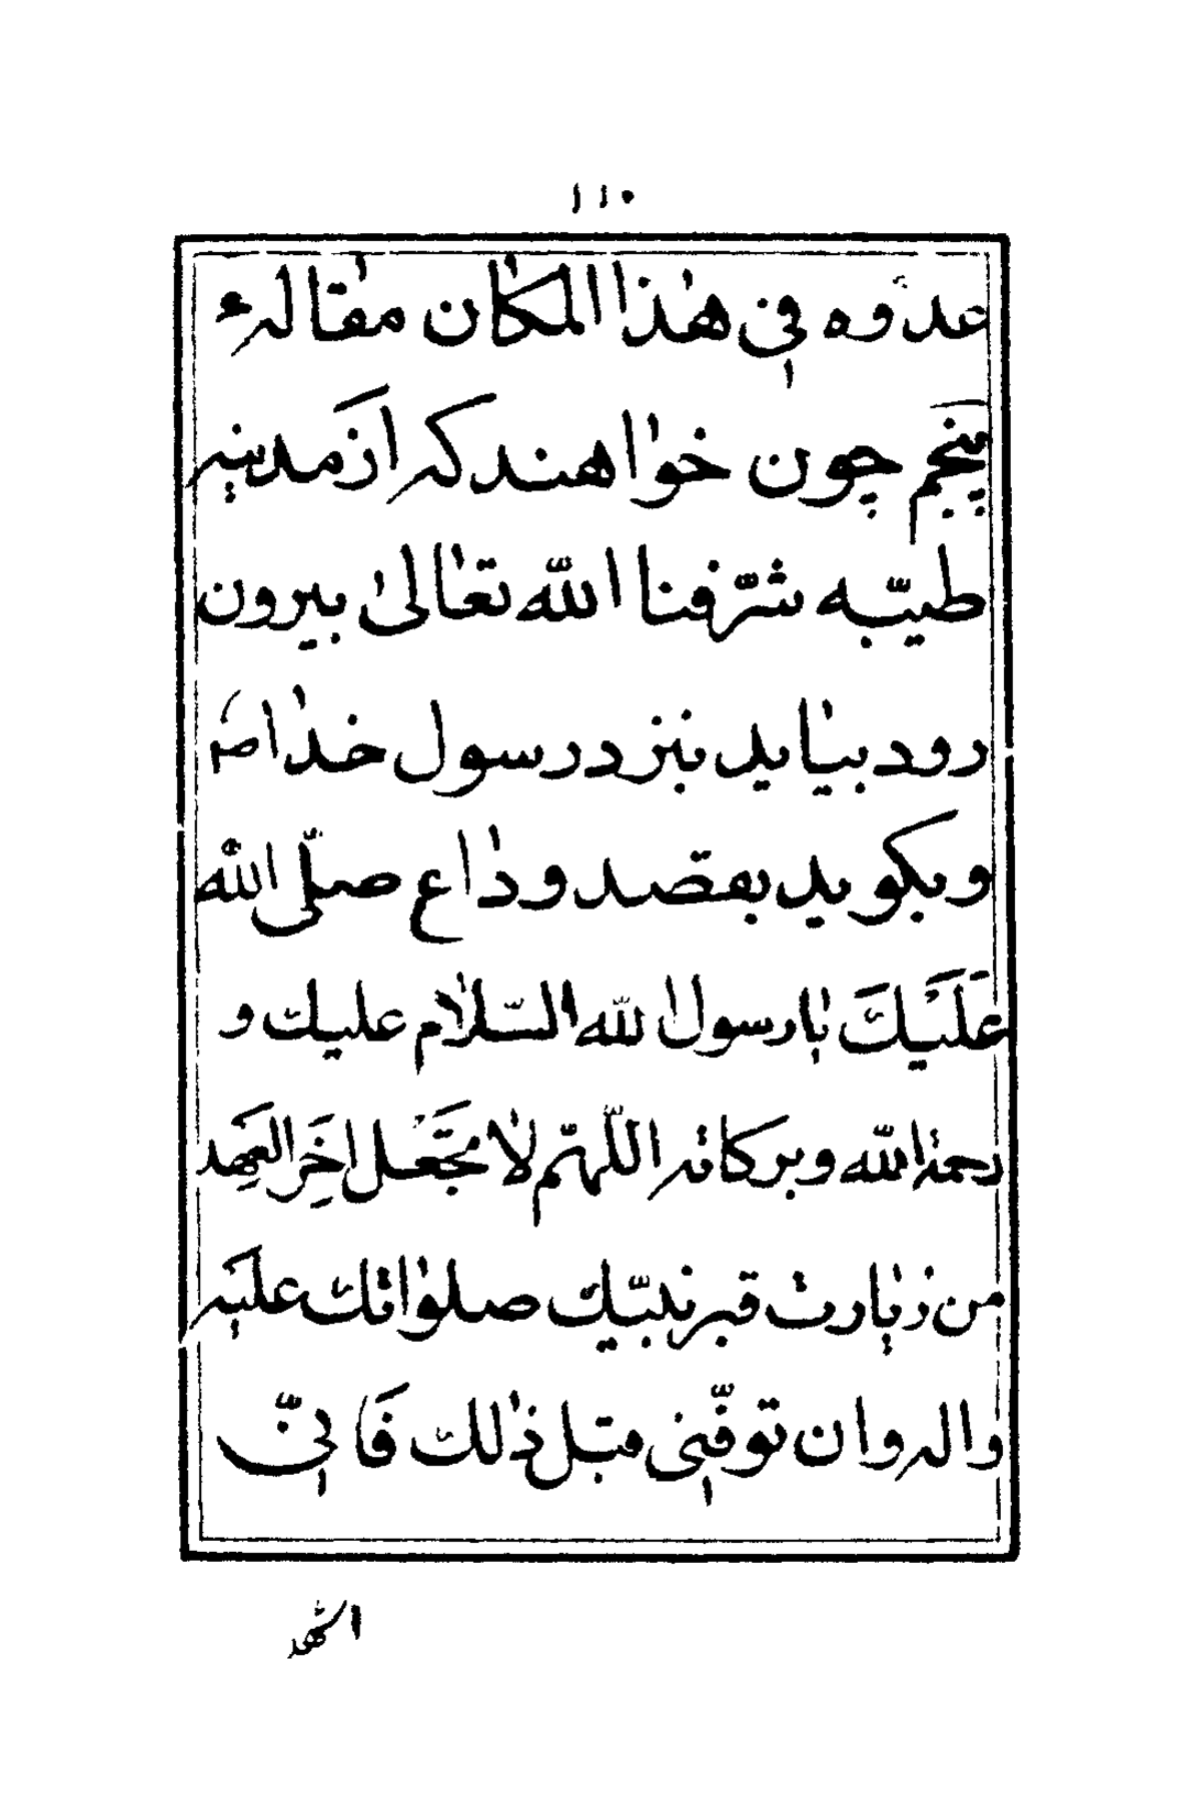 ۱۱۰
عدوّه فی هٰذا المکٰان مقٰالهٔ
پنجم چون خوٰاهند که از مدینه
طیّبه شرّفنا اللّه تعٰالیٰ بیرون
رود بیٰاید بنزد رسول خدٰا ص
و بکوید بقصد ودٰاع صلّی اللّه
عَلَیْكَ یٰا رسول اللّه السّلٰام علیك و
رحمة اللّه و برکاته اللّهمّ لٰا تجَّعَْل اخَِرَ العَهِد
من زیٰارت قبر نبیّك صلوٰاتك علَیه
و اله و ان توفّینی قبل ذٰلك فَانّی
اشهد